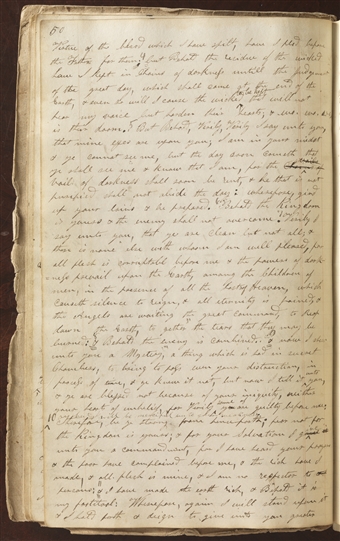 50
Virtue of the blood which I have spilt, have I plead before
the Father for them: but Behold the residue of the wicked
have I kept in chains of darkness untill the judgment
of the great day, which shall come at the end of the
Earth, & even so will I cause the wicked to be kept that will not
hear my voice but harden their hearts, & wo. wo. wo
is their doom. But Behold, Verily, Verily I say unto you,
that mine eyes are upon you, I am in your midst
& ye cannot see me, but the day soon cometh that
ye shall see me & know that I am, for the
vail of darkness shall soon be rent & he that is not
purified shall not abide the day: wherefore, gird
up your loins & be prepared. Behold the Kingdom
is yours & the enemy shall not overcome. Verily I
say unto you, that ye are clean but not all; &
there is none else with whom I am well pleased, for
all flesh is corruptible before me & the powers of dark-
ness prevail upon the Earth, among the Children of
men, in the presence of all the Hosts of Heaven, which
causeth silence to reign, & all eternity is pained, &
the Angels are waiting the great command, to reap
down the Earth, to gather the tears that they may be
burned: & Behold the enemy is combined. & now I shew
unto you a Mystery, a thing which is had in secret
Chambers, to bring to pass even your distruction, in
process of time, & ye knew it not, but now I tell it unto you,
& ye are blessed not because of your iniquity, neither
your heart of unbelief, for Verily some of you are guilty before me:
Therefore, be ye strong from henceforth; fear not for
the Kingdom is yours: & for your Salvation I give
unto you a commandment, for I have heard your prayers
& the poor have complained before me, & the rich have I
made, & all flesh is mine, & I am no respecter to
persons; & I have made the earth rich, & Behold it is
my footstool: Wherefore, again I will stand upon it
& I hold forth & deign to give unto you greater